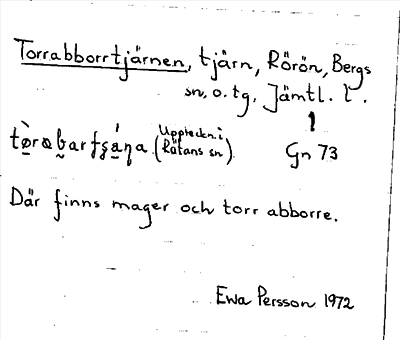 Torrabborrtjärnen, tjärn, Rörön, Bergs
sn. o. tg. Jämtl. l.
(Uppteckn. i
Rätans sn). Gn 73
Där finns mager och torr abborre.
Ewa Persson 1972